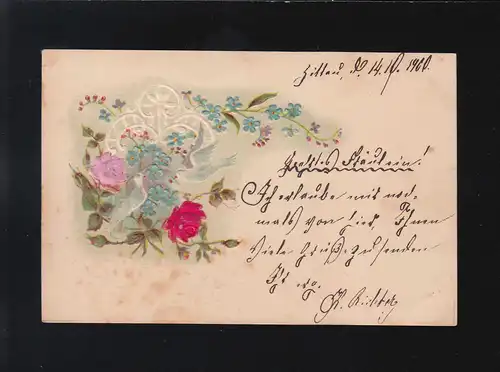 Zittau, d. 14.10.1900.
Geehrtes Fräulein!
Ich erlaube mir noch-
mals von hier, Ihnen
Viele Grüße zu senden
R. Richter